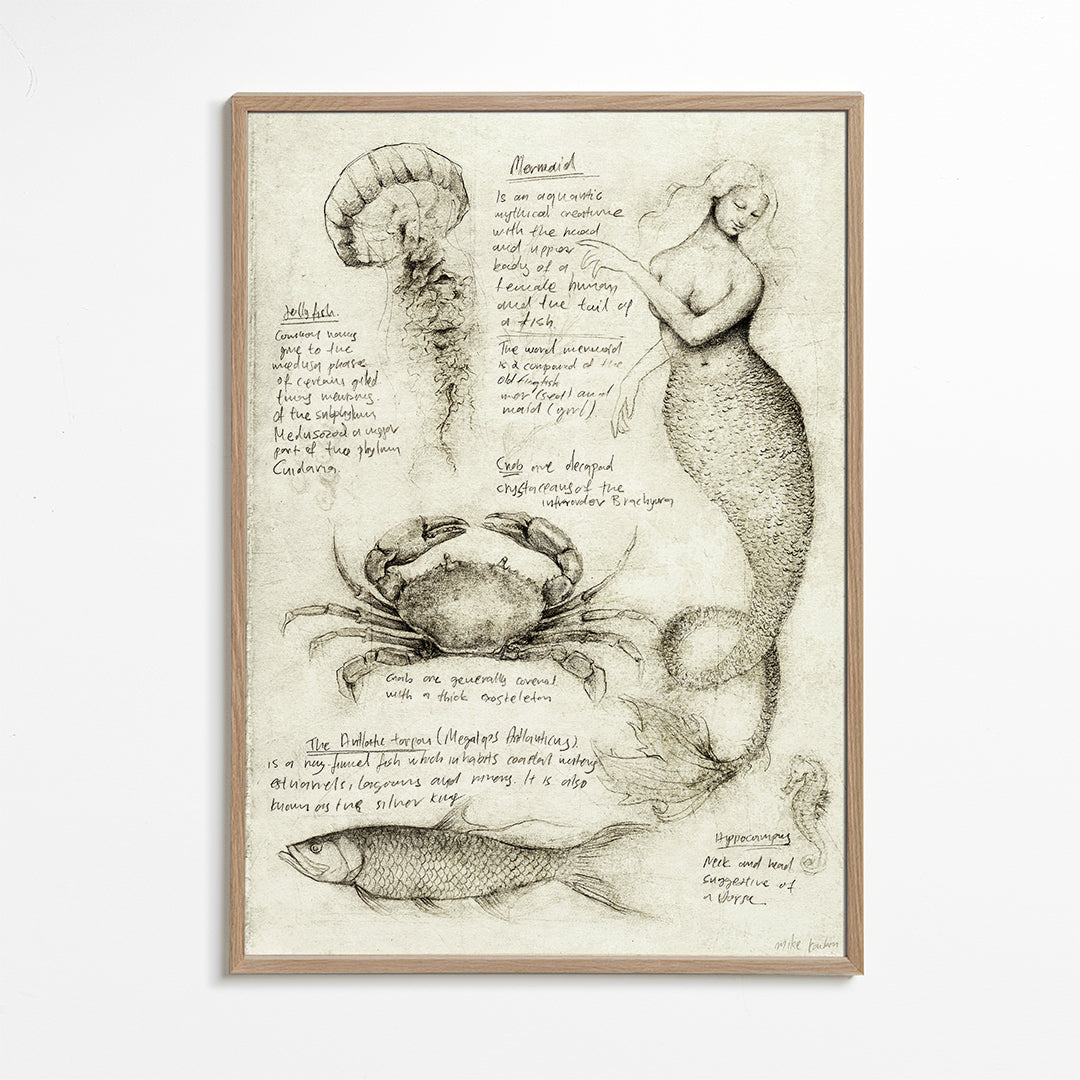 Mermaid
Is an aquantic
mythical creature
with the head
and upper
body of a
female human
and the tail of
a fish
The word mermaid
is a compound of the
old English
mer (sea) and
maid (girl)
Jellyfish.
Common names
give to the
medusa phase
of certain
of the subphylum
Medusozoa a major
part of the phylum
Cnidaria.
Crab are decapod
crystaceans of the
infraorder Brachyura
Crab are generally covered
with a thick exosteleton
The Antlantic tarpon (Megalops Atlanticus)
is a ray-finned fish which inhabits coastal waters
estuaries, lagoons and rivers. It is also
known as the silver king
Hippocampus
Neck and head
suggestive of
a Horse
Mike